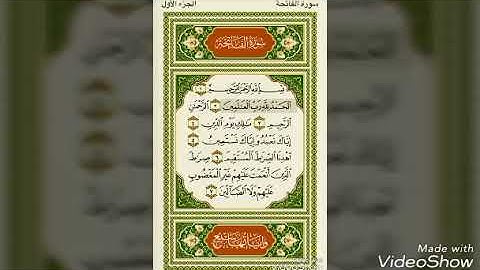 سورة الفاتحة
الجزء الأول
سورة الفاتحة
بسم الله الرحمن الرحيم ١
الحمد لله رب العلمين ٢ الرحمن
الرحيم ٣ ملك يوم الدين ٤
إياك نعبد وإياك نستعين ٥
اهدنا الصرط المستقيم ٦ صرط
الذين أنعمت عليهم غير المغضوب
عليهم ولا الضالين ٧
وآياتها سبع
Made with
VideoShow